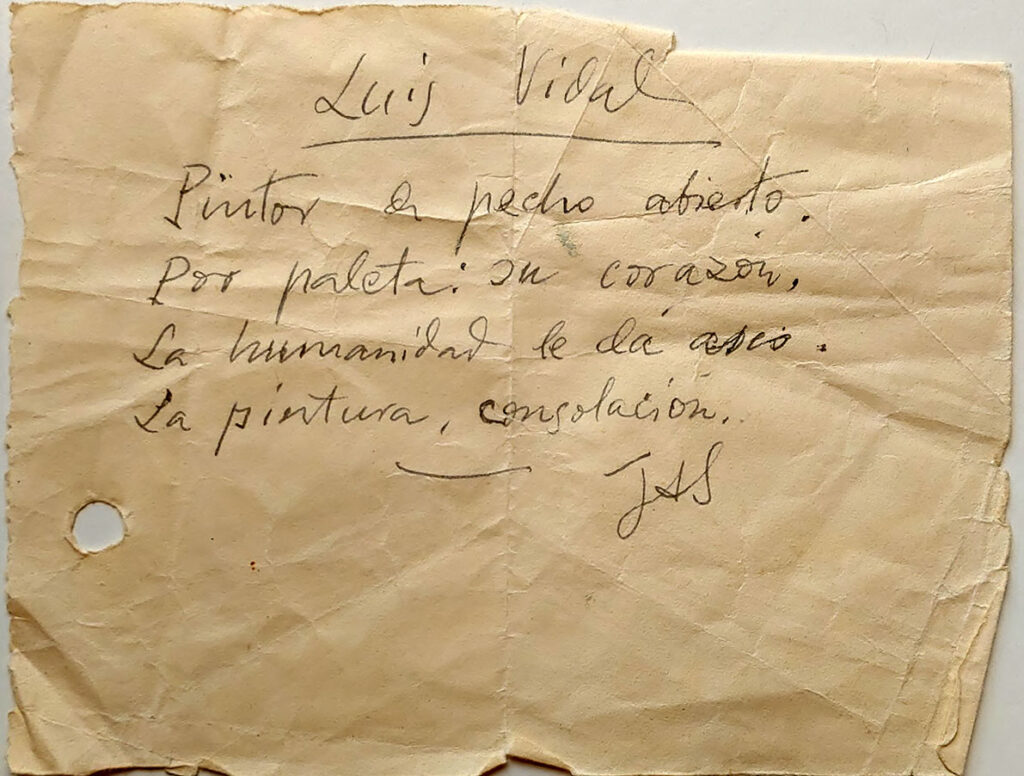 Luis Vidal
Pintor a pecho abierto.
Por paleta: su corazón.
La humanidad le dá asco.
La pintura, consolación.
JAS